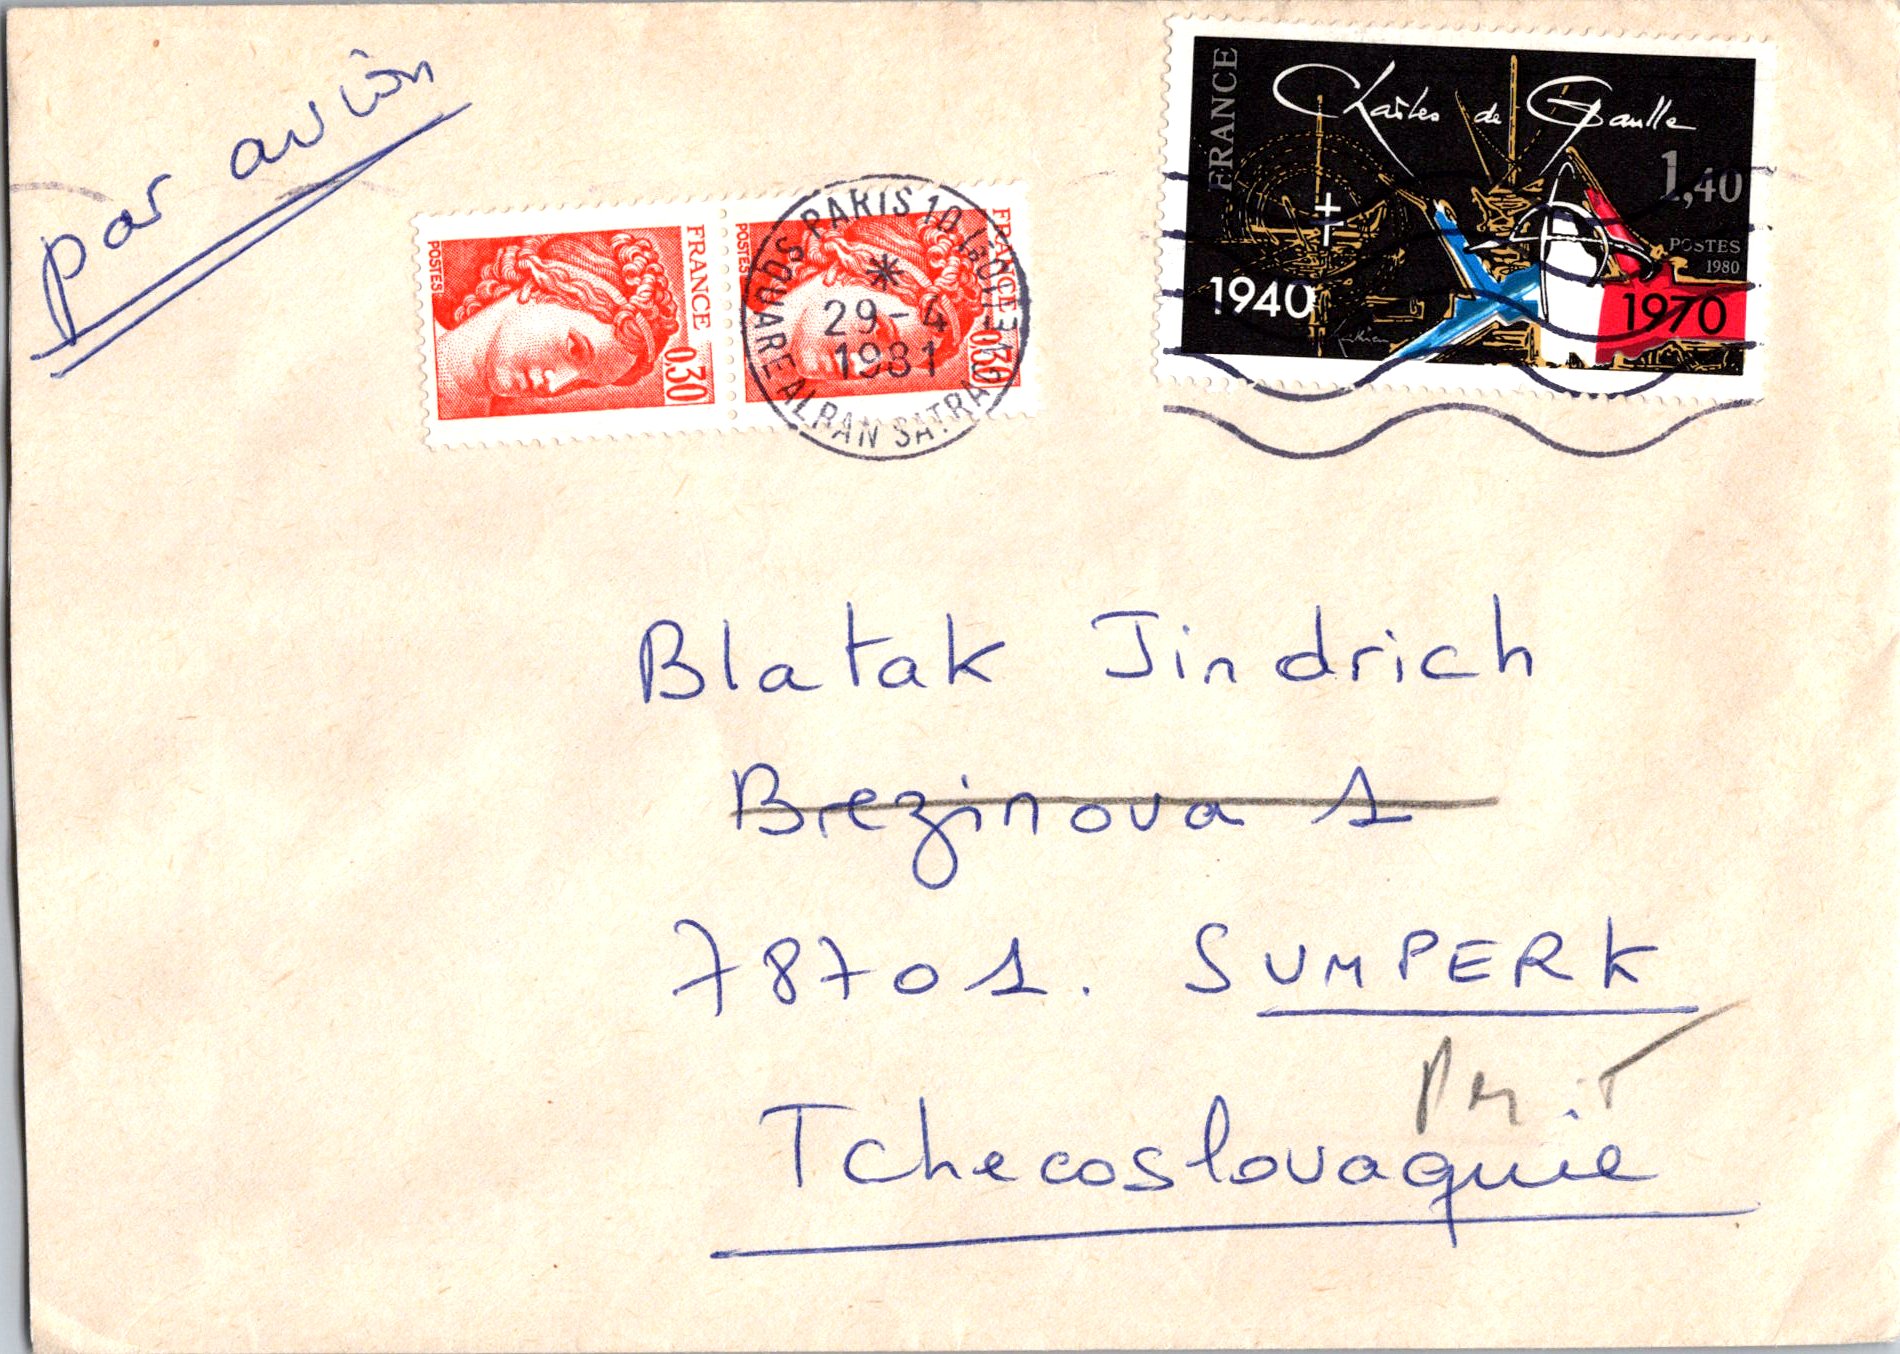 par avion
POSTES
FRANCE
0,30
POSTES
FRANCE
0,30
PARIS 10
*
29-4
1981
SQUARE ALBAN SATRAGNE
FRANCE
Charles de Gaulle
1,40
POSTES
1980
1940
1970
Blatak Jindrich
Brezinova 1
78701. SUMPERK
Tchecoslovaquie